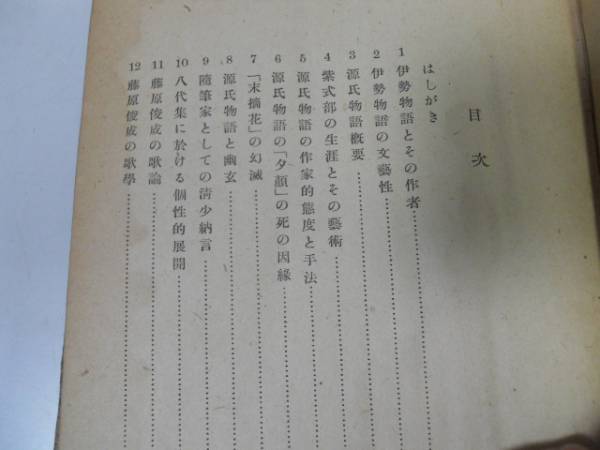 目次
はしがき
1 伊勢物語とその作者
2 伊勢物語の文藝性
3 源氏物語概要
4 紫式部の生涯とその藝術
5 源氏物語の作家的態度と手法
6 源氏物語の「夕顏」の死の因緣
7 「末摘花」の幻滅
8 源氏物語と幽玄
9 隨筆家としての淸少納言
10 八代集に於ける個性的展開
11 藤原俊成の歌論
12 藤原俊成の歌學